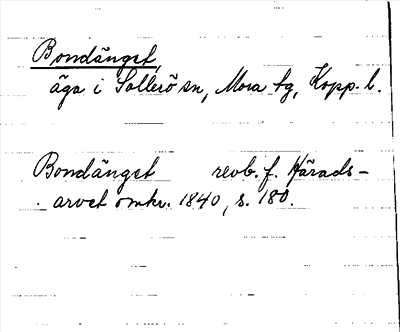 Bondänget,
äga i Sollerö sn, Mora tg, Kopp. l.
Bondänget revb. f. Härads-
arvet omkr. 1840, s. 180.